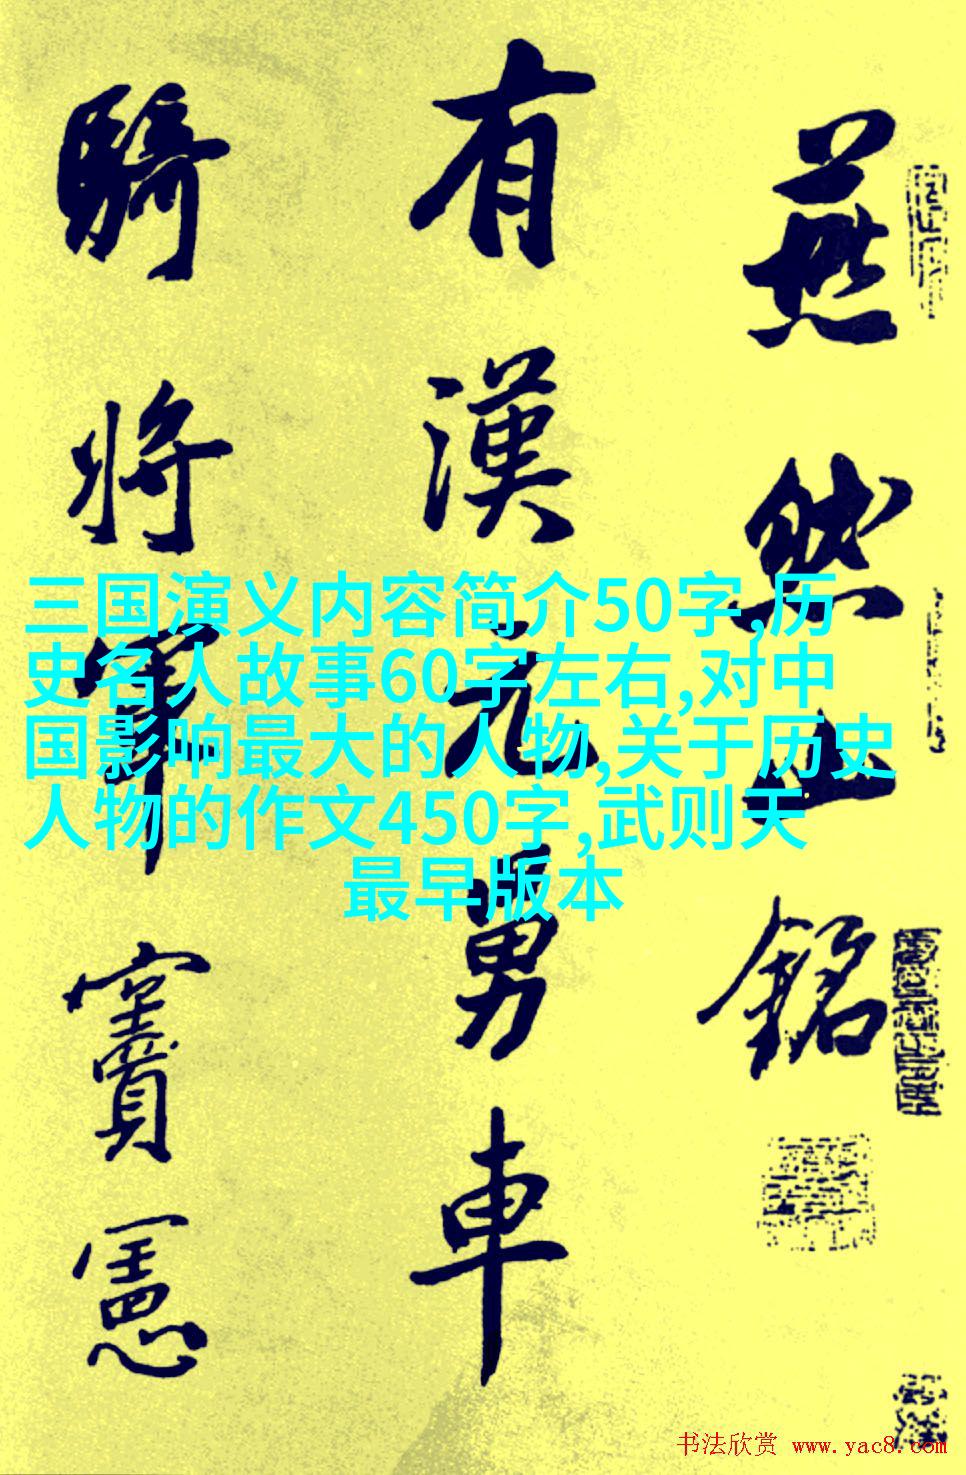 燕然山銘
有漢元舅車
騎將軍竇憲
三国演义内容简介50字,历
史名人故事60字左右,对中
国影响最大的人物,关于历史
人物的作文450字,武则天
最早版本
书法欣赏 www.yac8.com